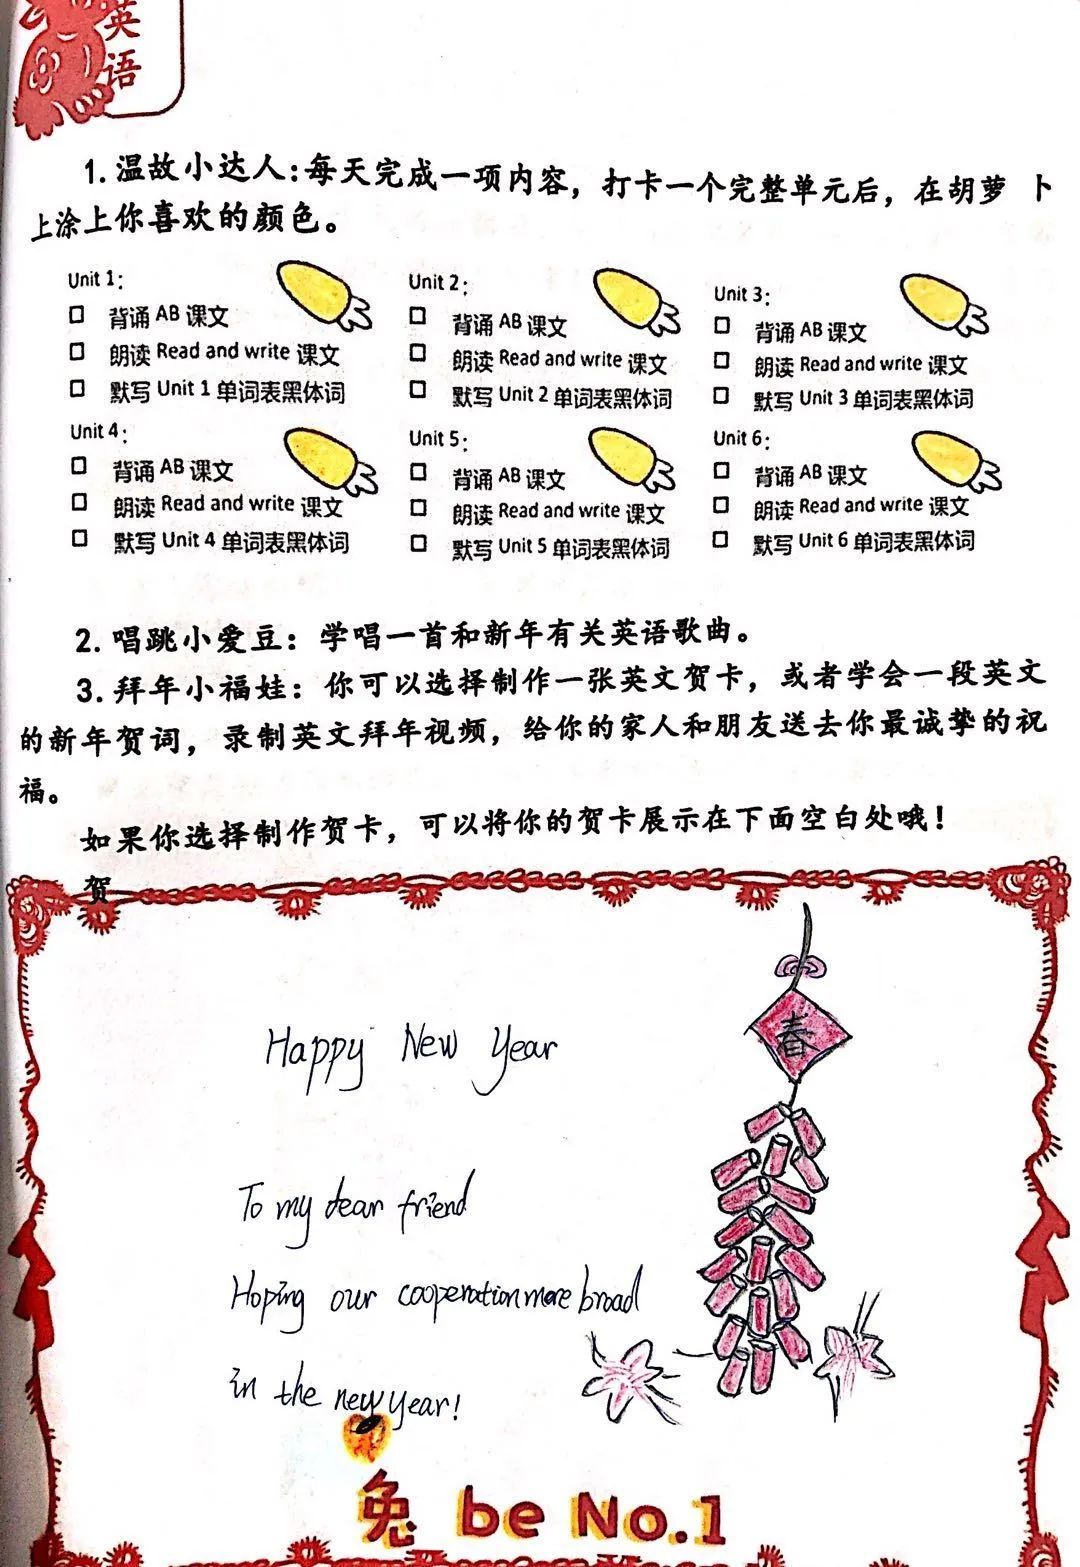 英
语
1. 温故小达人:每天完成一项内容，打卡一个完整单元后，在胡萝 卜
上涂上你喜欢的颜色。
Unit 1:
□ 背诵 AB 课文
□ 朗读 Read and write 课文
□ 默写 Unit 1 单词表黑体词
Unit 2:
□ 背诵 AB 课文
□ 朗读 Read and write 课文
□ 默写 Unit 2 单词表黑体词
Unit 3:
□ 背诵 AB 课文
□ 朗读 Read and write 课文
□ 默写 Unit 3 单词表黑体词
Unit 4:
□ 背诵 AB 课文
□ 朗读 Read and write 课文
□ 默写 Unit 4 单词表黑体词
Unit 5:
□ 背诵 AB 课文
□ 朗读 Read and write 课文
□ 默写 Unit 5 单词表黑体词
Unit 6:
□ 背诵 AB 课文
□ 朗读 Read and write 课文
□ 默写 Unit 6 单词表黑体词
2. 唱跳小爱豆：学唱一首和新年有关英语歌曲。
3. 拜年小福娃：你可以选择制作一张英文贺卡，或者学会一段英文
的新年贺词，录制英文拜年视频，给你的家人和朋友送去你最诚挚的祝
福。
如果你选择制作贺卡，可以将你的贺卡展示在下面空白处哦！
贺
春
Happy New Year
To my dear friend
Hoping our cooperation more broad
in the new year!
兔 be No.1